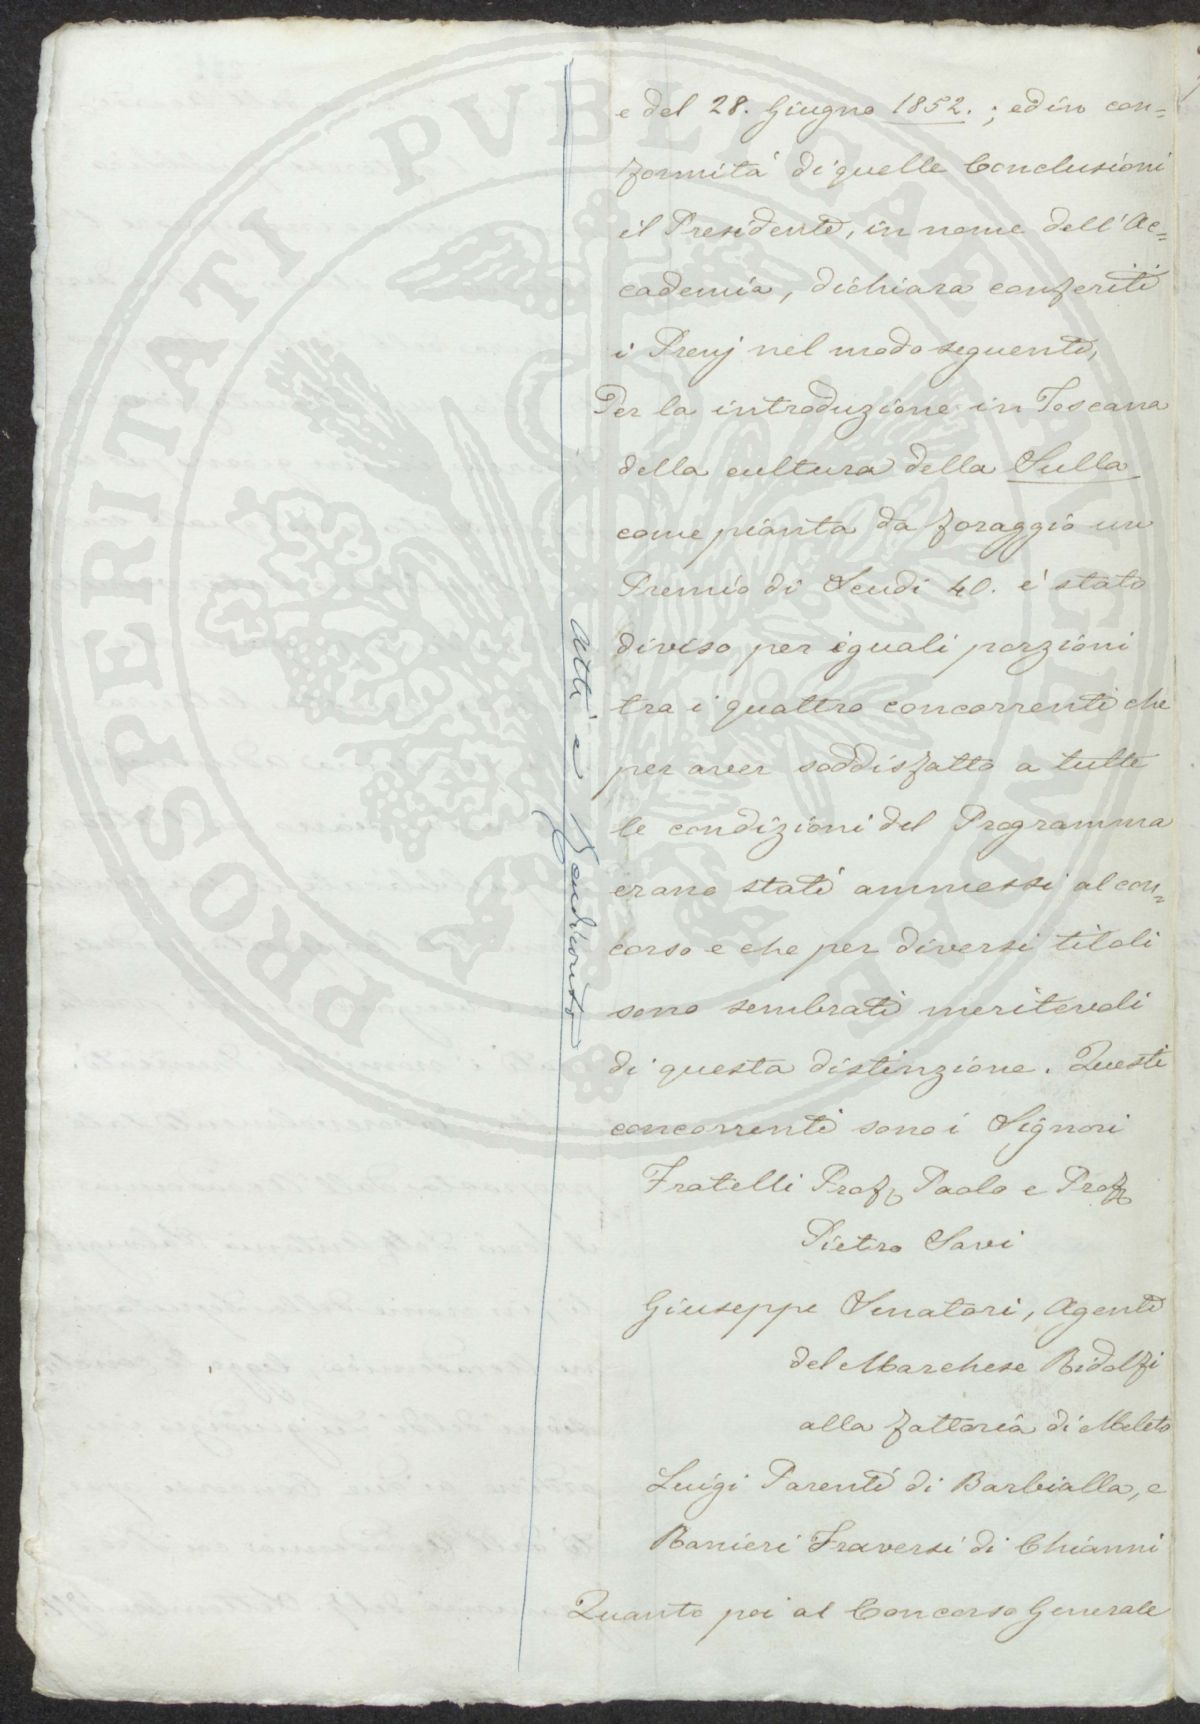 e del 28. Giugno 1852. ; ed in con=
formità di quelle Conclusioni
il Presidente, in nome dell'Ac=
cademia, dichiara conferiti
i Premj nel modo seguente,
Per la introduzione in Toscana
della cultura della Sulla
come pianta da foraggio un
Premio di Scudi 40. è stato
diviso per eguali porzioni
tra i quattro concorrenti che
per aver soddisfatto a tutte
le condizioni del Programma
erano stati ammessi al con=
corso e che per diversi titoli
sono sembrati meritevoli
di questa distinzione. Questi
concorrenti sono i Signori
Fratelli Prof. Paolo e Prof.
Pietro Savi
Giuseppe Senatori, Agente
del Marchese Ridolfi
alla fattoria di Meleto
Luigi Parenti di Barbialla, e
Ranieri Traversi di Chianni
Quanto poi al Concorso Generale
Atti e Rendiconto
PROSPERITATI PVBLICAE AVGENDAE